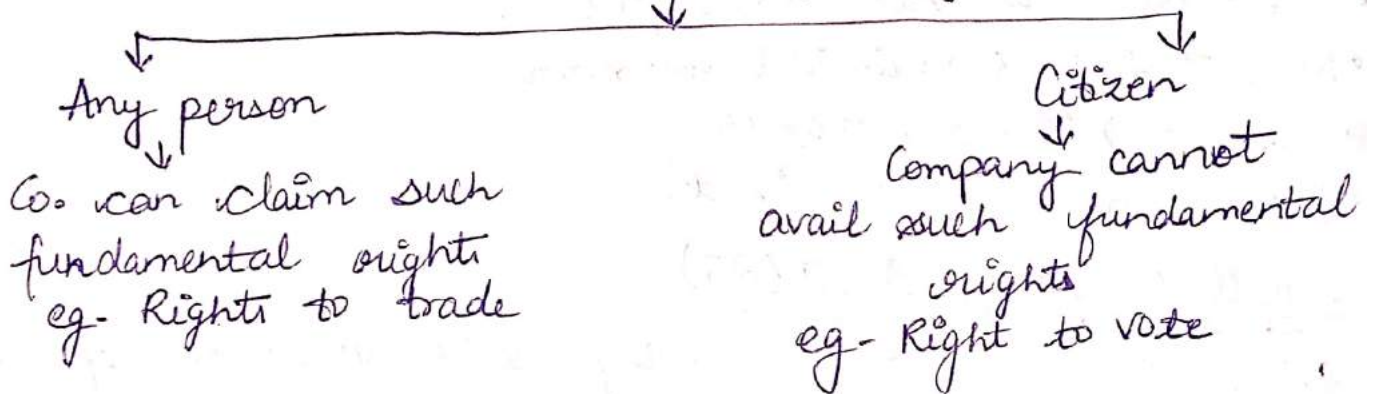 Any person
Co. can claim such
fundamental rights
eg- Rights to trade
Citizen
Company cannot
avail such fundamental
rights
eg- Right to vote